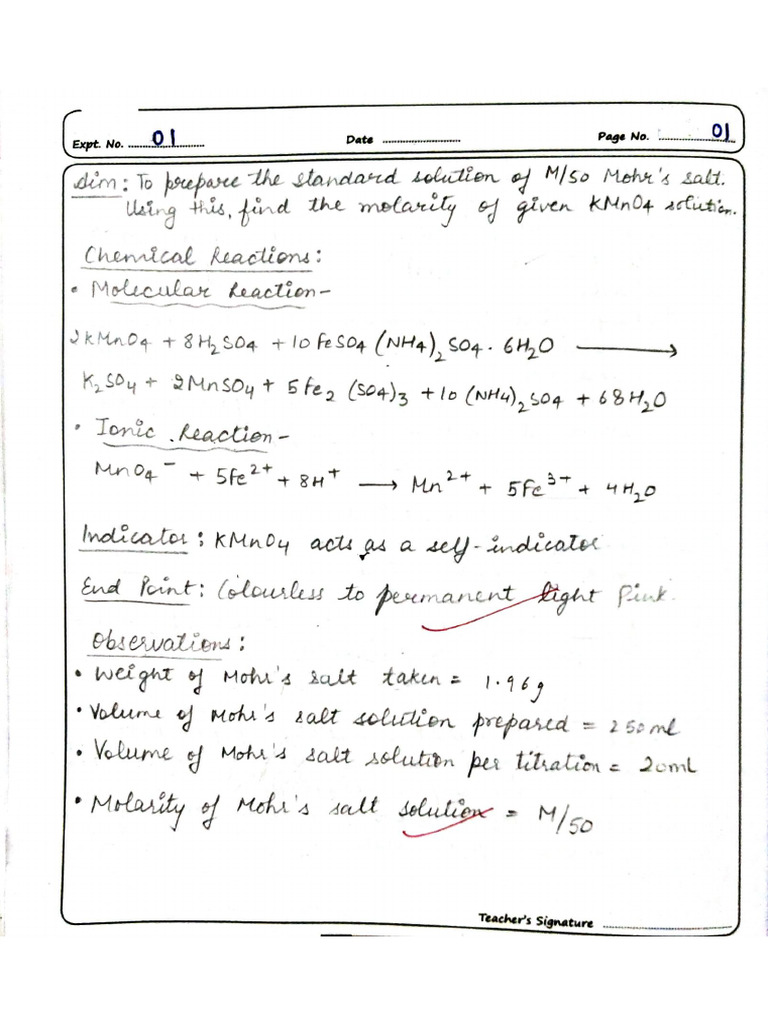 Expt. No. 01 Date Page No. 01
Aim: To prepare the standard solution of M/50 Mohr's salt.
Using this, find the molarity of given KMnO4 solution.
Chemical Reactions:
• Molecular Reaction-
2KMnO4 + 8H2SO4 + 10FeSO4(NH4)2SO4·6H2O ⟶
K2SO4 + 2MnSO4 + 5Fe2(SO4)3 + 10(NH4)2SO4 + 68H2O
• Ionic Reaction-
MnO4⁻ + 5Fe²⁺ + 8H⁺ ⟶ Mn²⁺ + 5Fe³⁺ + 4H2O
Indicator: KMnO4 acts as a self-indicator
End Point: Colourless to permanent light Pink.
Observations:
• Weight of Mohr's salt taken = 1.96g
• Volume of Mohr's salt solution prepared = 250ml
• Volume of Mohr's salt solution per titration = 20ml
• Molarity of Mohr's salt solution = M/50
Teacher's Signature